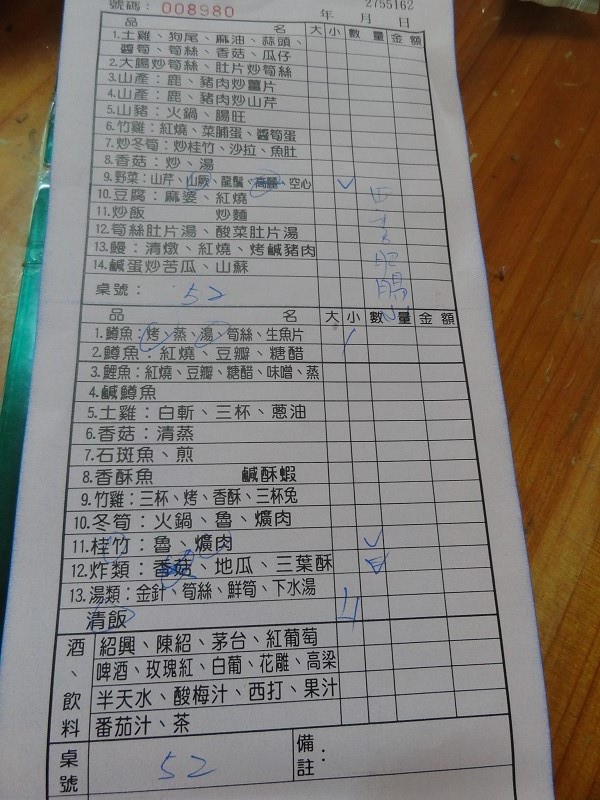 號碼：008980 年 月 日 2755162
品 名 大 小 數 量 金 額
1.土雞、狗尾、麻油、蒜頭、
醬筍、筍絲、香菇、瓜仔
2.大腸炒筍絲、肚片炒筍絲
3.山產：鹿、豬肉炒薑片
4.山產：鹿、豬肉炒山芹
5.山豬：火鍋、腸旺
6.竹雞：紅燒、菜脯蛋、醬筍蛋
7.炒冬筍：炒桂竹、沙拉、魚肚
8.香菇：炒、湯
9.野菜：山芹、山蕨、龍鬚、高麗、空心
10.豆腐：麻婆、紅燒
11.炒飯 炒麵
12.筍絲肚片湯、酸菜肚片湯
13.鰻：清燉、紅燒、烤鹹豬肉
14.鹹蛋炒苦瓜、山蘇
肥腸
桌號： 52
品 名 大 小 數 量 金 額
1.鱒魚：烤、蒸、湯、筍絲、生魚片
2.鱒魚：紅燒、豆瓣、糖醋
3.鯉魚：紅燒、豆瓣、糖醋、味噌、蒸
4.鹹鱒魚
5.土雞：白斬、三杯、蔥油
6.香菇：清蒸
7.石斑魚、煎
8.香酥魚 鹹酥蝦
9.竹雞：三杯、烤、香酥、三杯兔
10.冬筍：火鍋、魯、爌肉
11.桂竹：魯、爌肉
12.炸類：香菇、地瓜、三葉酥
13.湯類：金針、筍絲、鮮筍、下水湯
清飯
酒、飲料
紹興、陳紹、茅台、紅葡萄
啤酒、玫瑰紅、白葡、花雕、高梁
半天水、酸梅汁、西打、果汁
番茄汁、茶
桌號 52 備註：